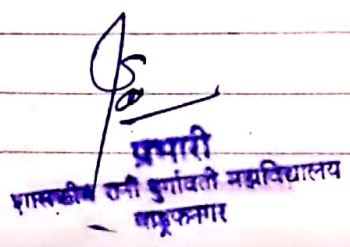 प्रभारी
शासकीय रानी दुर्गावती महाविद्यालय
वाड्रफनगर